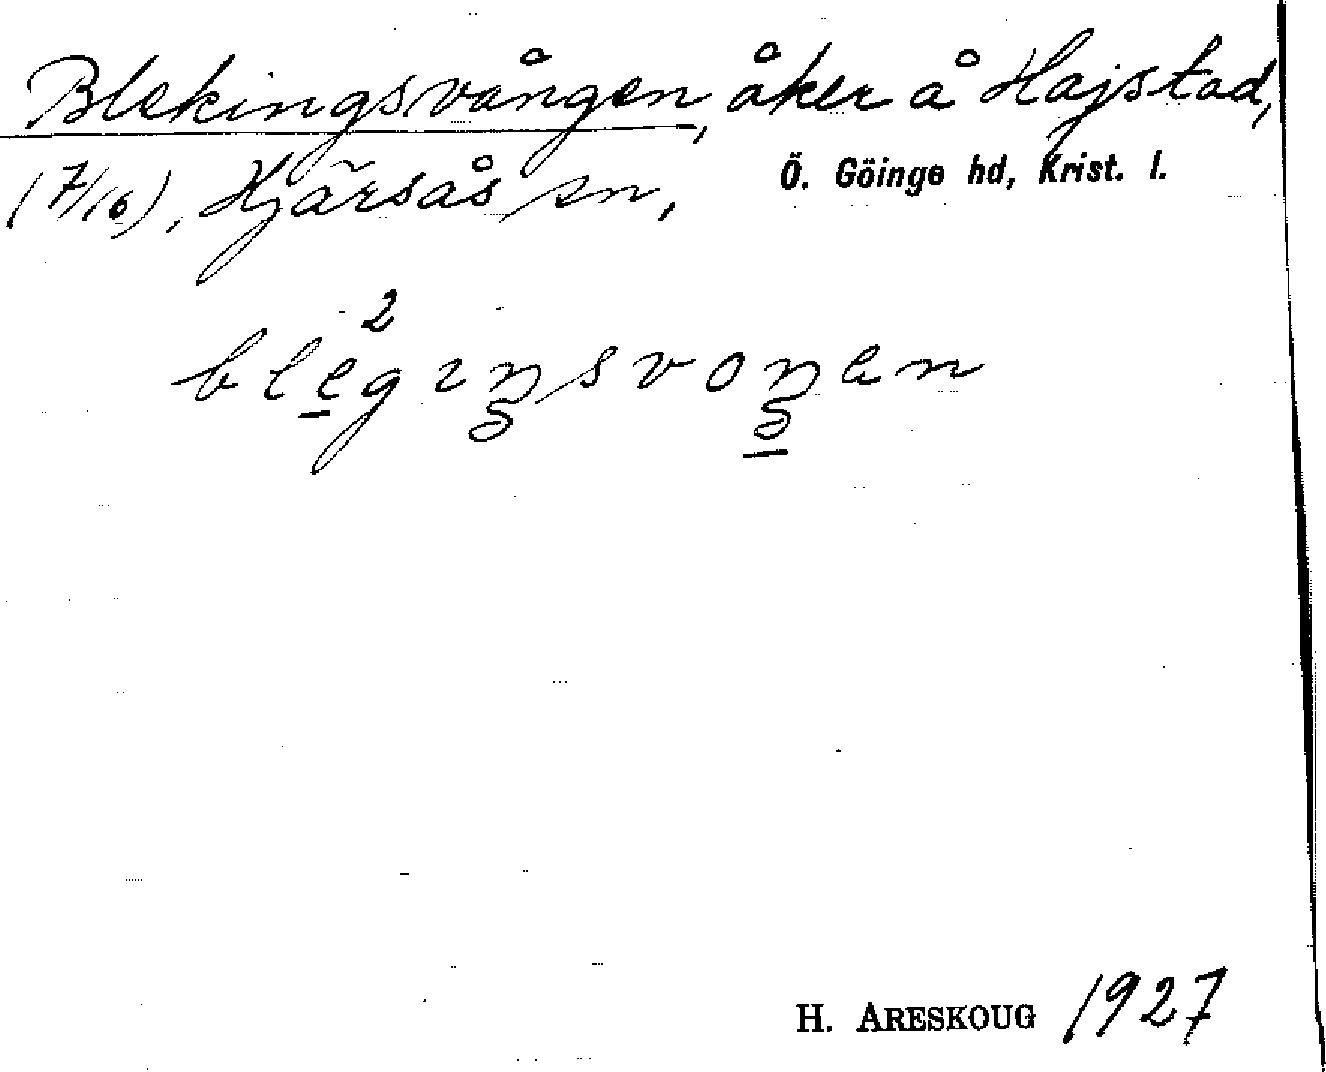 Blekingsvången, åker å Hajstad,
(7/16), Hjärsås sn, Ö. Göinge hd, Krist. l.
2
blegıŋsvoŋen
H. ARESKOUG 1927